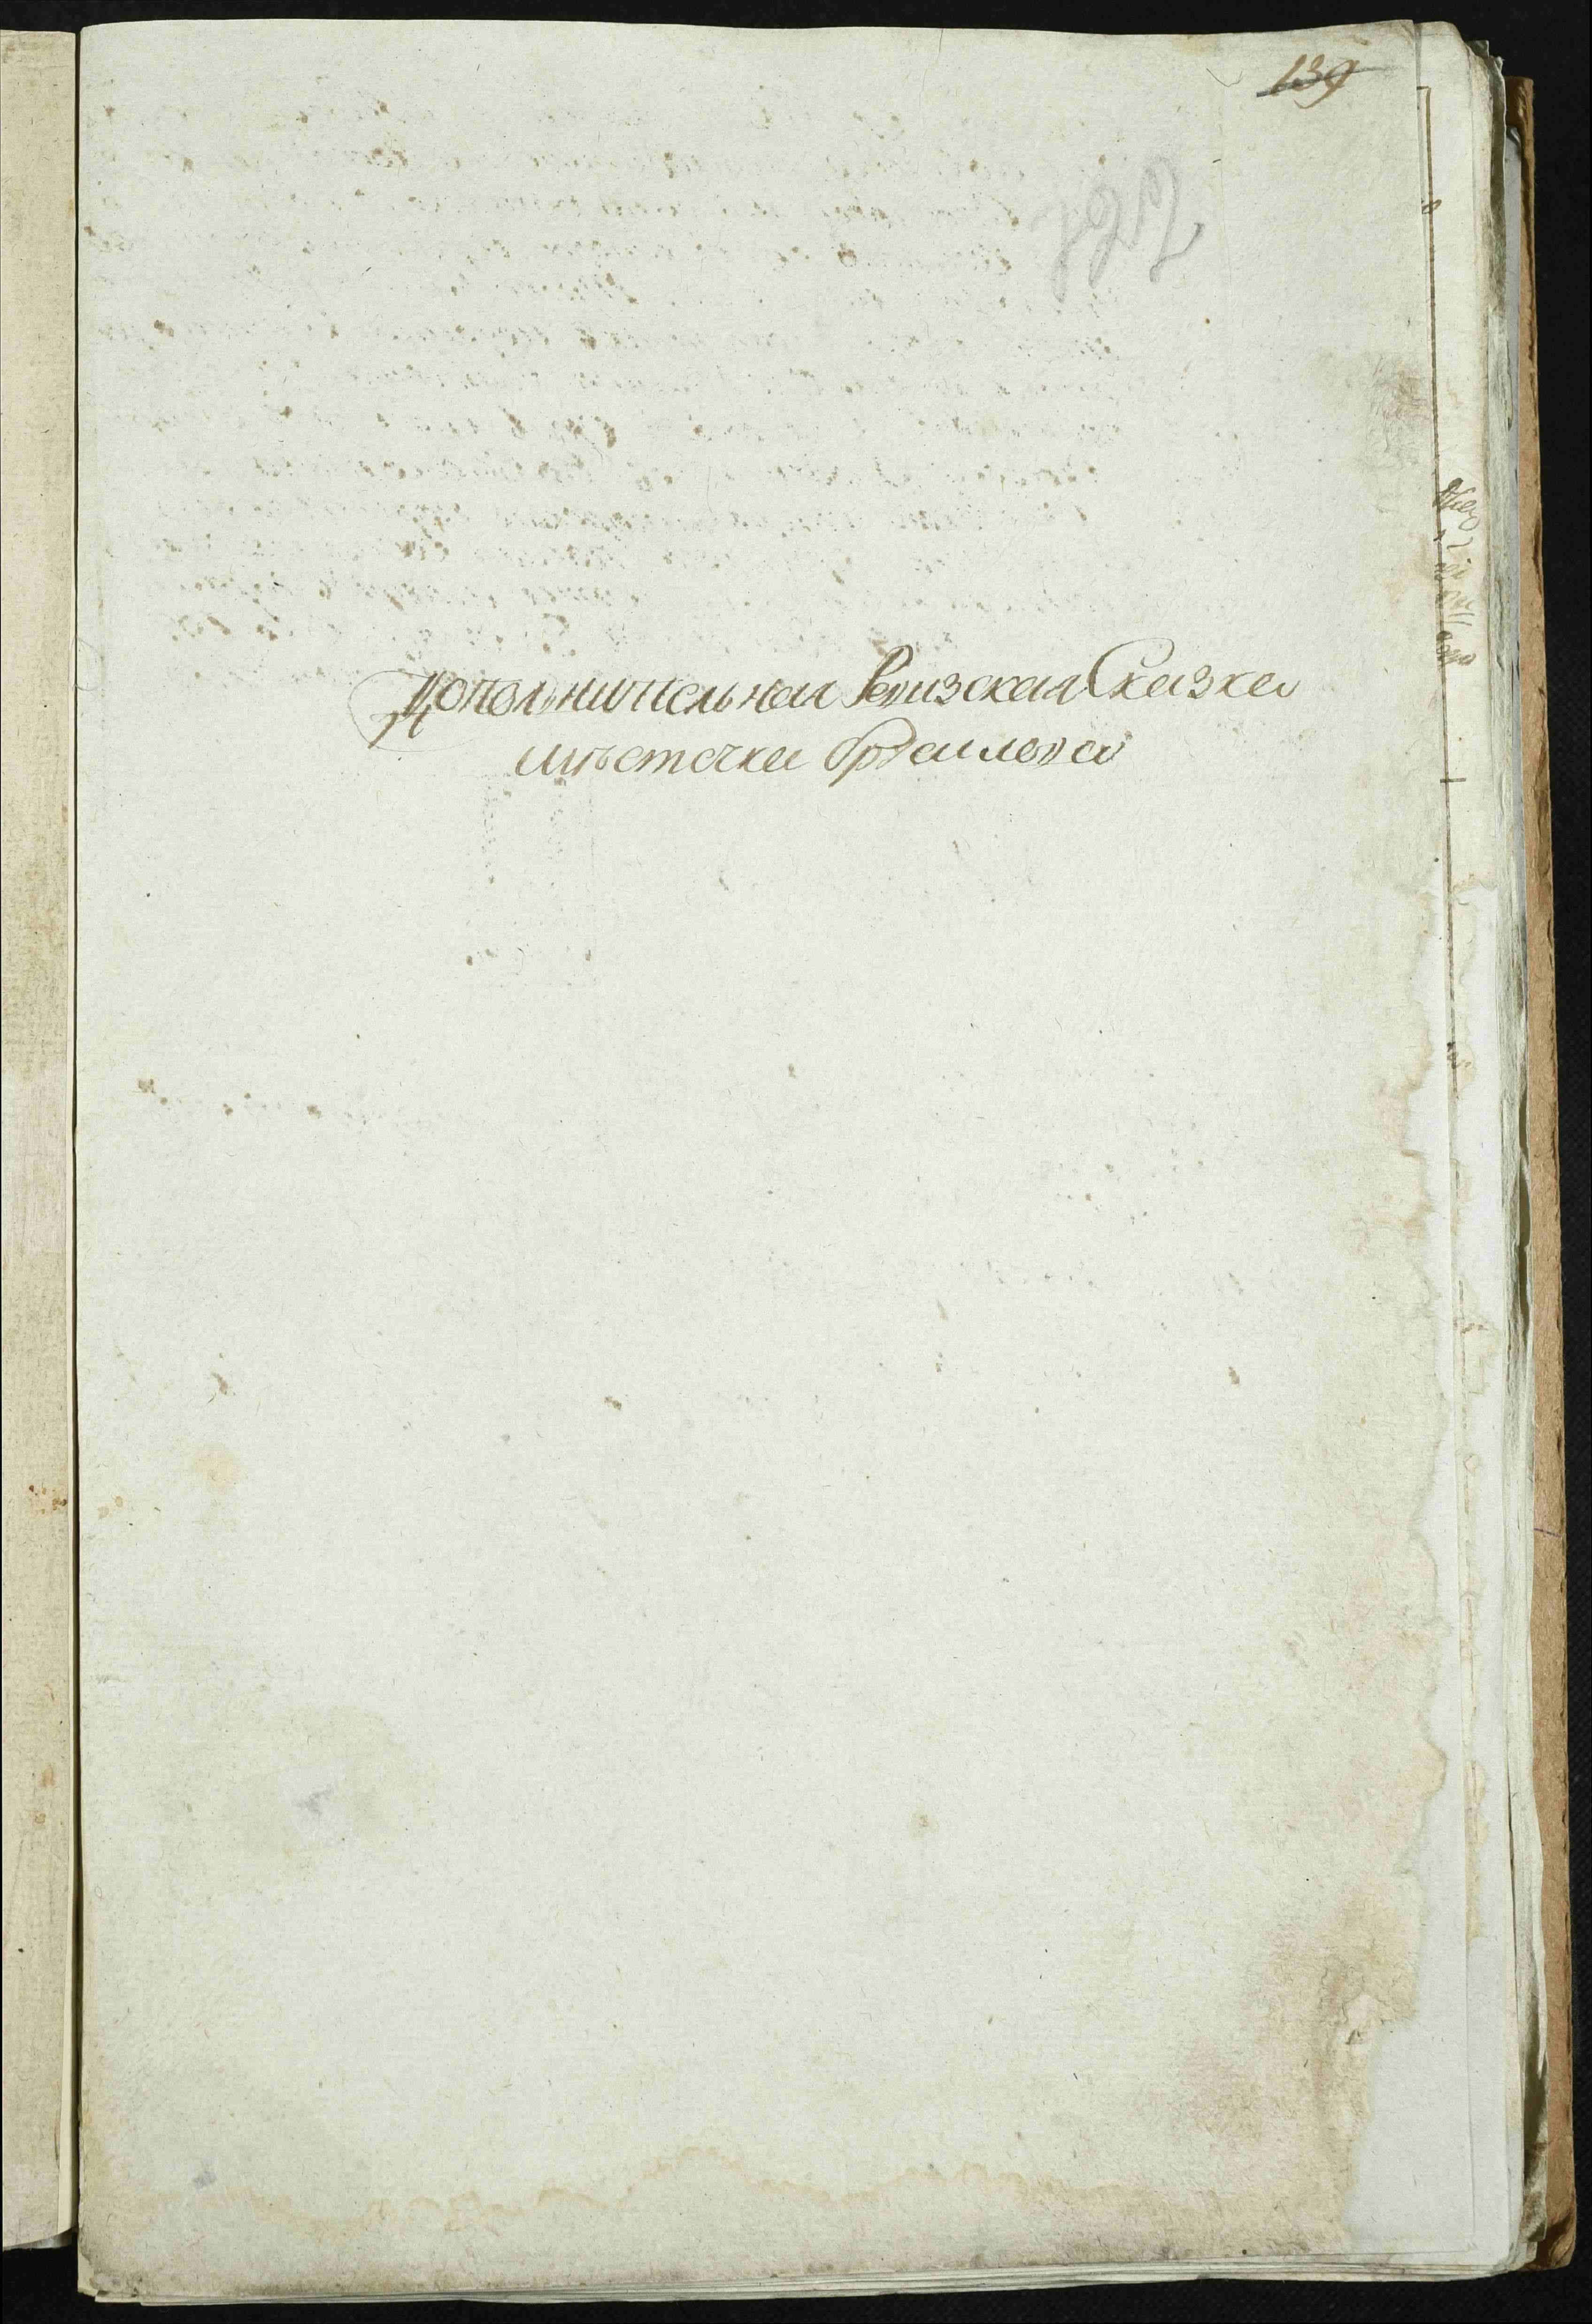 139
Дополнительная Ревизская Сказка
мѣстечка Браилова